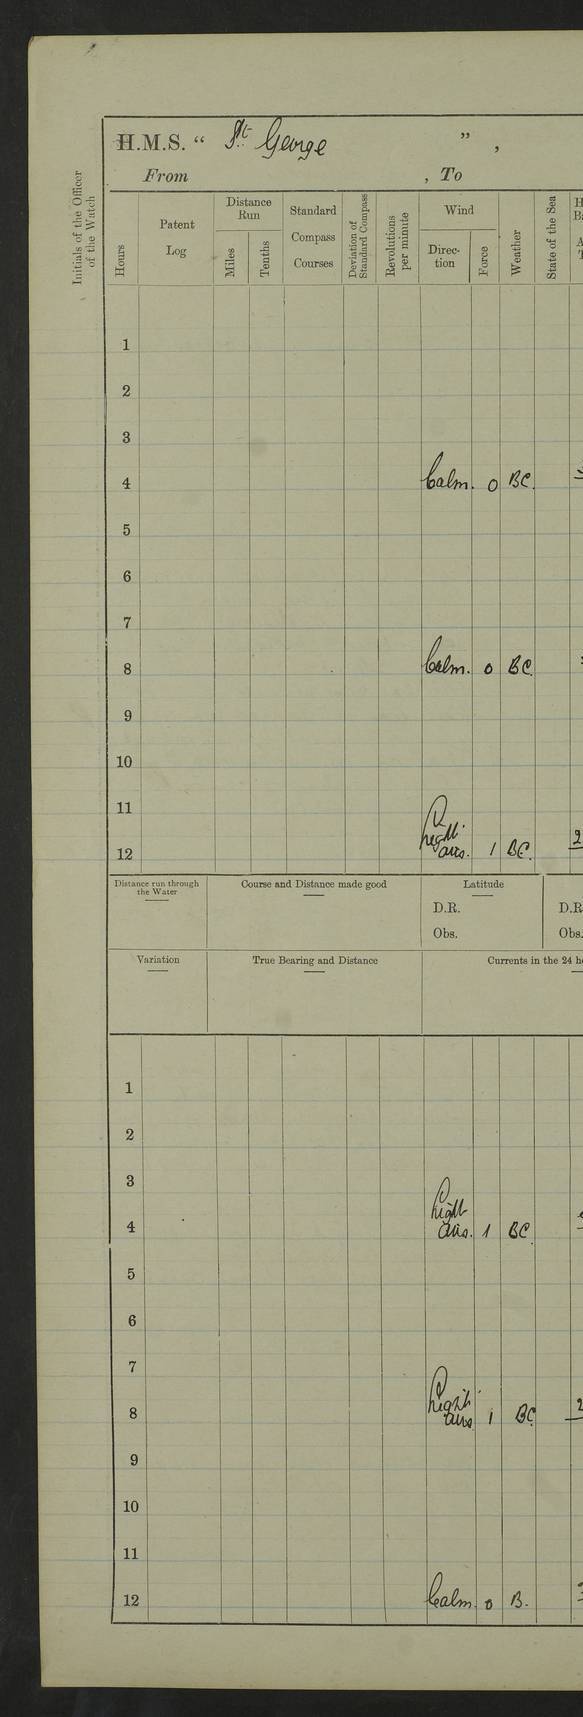 H.M.S. “ St. George ” ,
From , To
Initials of the Officer
of the Watch
Hours
Patent
Log
Distance
Run
Miles
Tenths
Standard
Compass
Courses
Deviation of
Standard Compass
Revolutions
per minute
Wind
Direc-
tion
Force
Weather
State of the Sea
1
2
3
4 Calm. 0 BC.
5
6
7
8 Calm. 0 BC.
9
10
11
Light
12 airs. 1 BC. 2
Distance run through
the Water
Course and Distance made good
Latitude
D.R. D.R
Obs. Obs.
Variation
True Bearing and Distance
Currents in the 24 h
1
2
3
Light
4 airs. 1 BC
5
6
7
Light
8 airs 1 BC 2
9
10
11
12 Calm. 0 B.